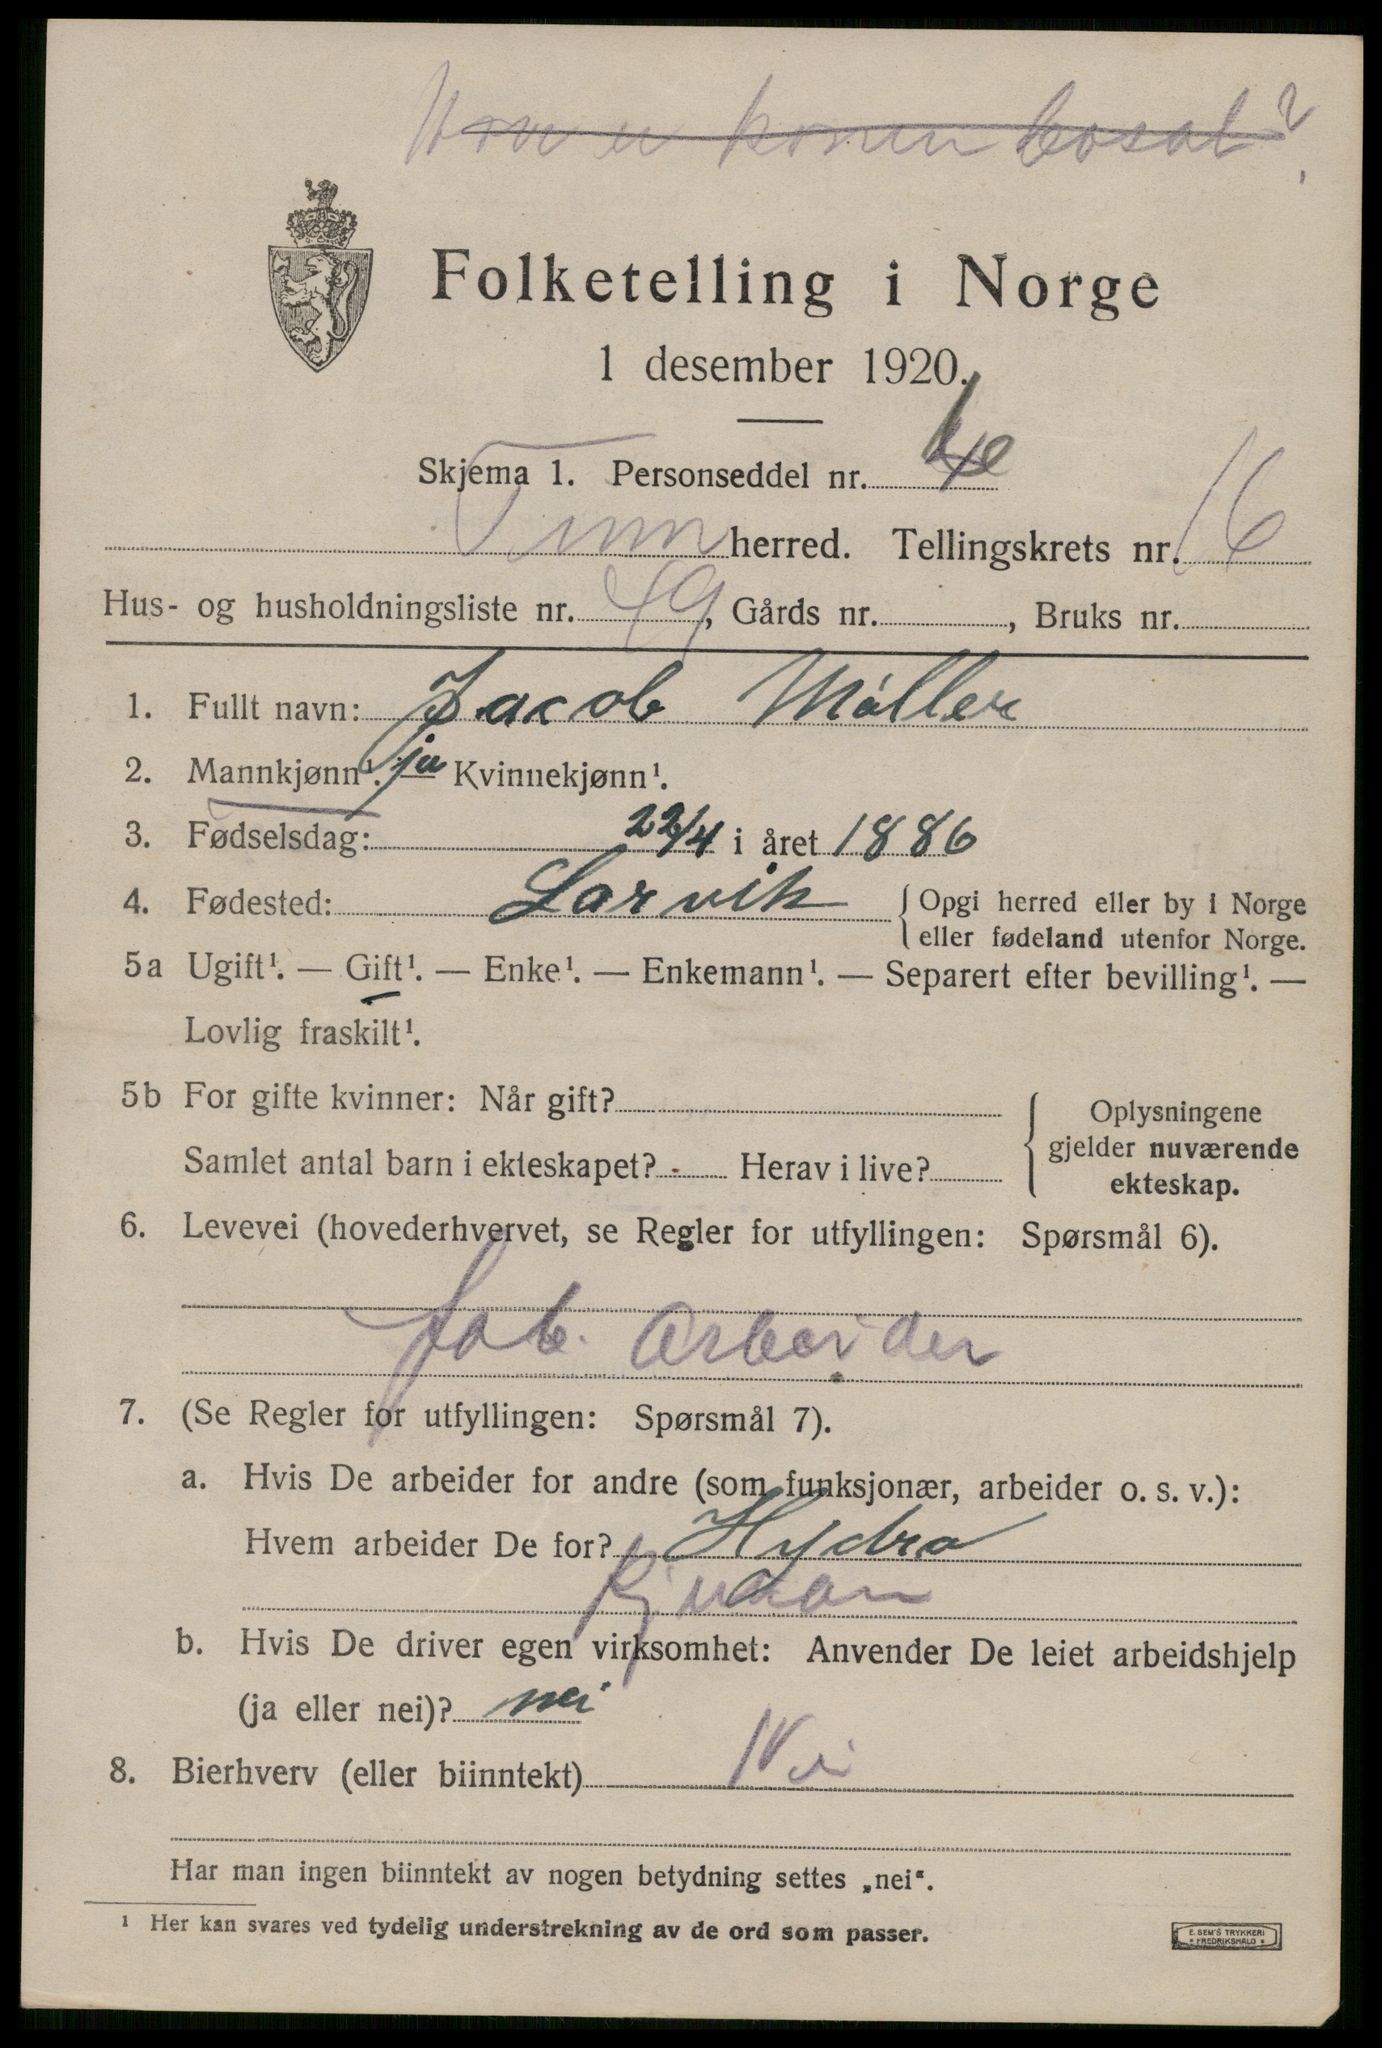 Hvor er konen bosat?
Folketelling i Norge
1 desember 1920.
Skjema 1. Personseddel nr.
Tinn herred. Tellingskrets nr. 16
Hus- og husholdningsliste nr. 49, Gårds nr. , Bruks nr.
1. Fullt navn: Jacob Møller
2. Mannkjønn¹. ja Kvinnekjønn¹.
3. Fødselsdag: 22/4 i året 1886
4. Fødested: Larvik { Opgi herred eller by i Norge
eller fødeland utenfor Norge.
5a Ugift¹. — Gift¹. — Enke¹. — Enkemann¹. — Separert efter bevilling¹. —
Lovlig fraskilt¹.
5b For gifte kvinner: Når gift?
Samlet antal barn i ekteskapet? Herav i live?
{ Oplysningene
gjelder nuværende
ekteskap.
6. Levevei (hovederhvervet, se Regler for utfyllingen: Spørsmål 6).
fab. Arbeider
7. (Se Regler for utfyllingen: Spørsmål 7).
a. Hvis De arbeider for andre (som funksjonær, arbeider o. s. v.):
Hvem arbeider De for? Hydro
Rjukan
b. Hvis De driver egen virksomhet: Anvender De leiet arbeidshjelp
(ja eller nei)? nei
8. Bierhverv (eller biinntekt) Nei
Har man ingen biinntekt av nogen betydning settes „nei“.
¹ Her kan svares ved tydelig understrekning av de ord som passer.
E. SEM'S TRYKKERI
* FREDRIKSHALD *